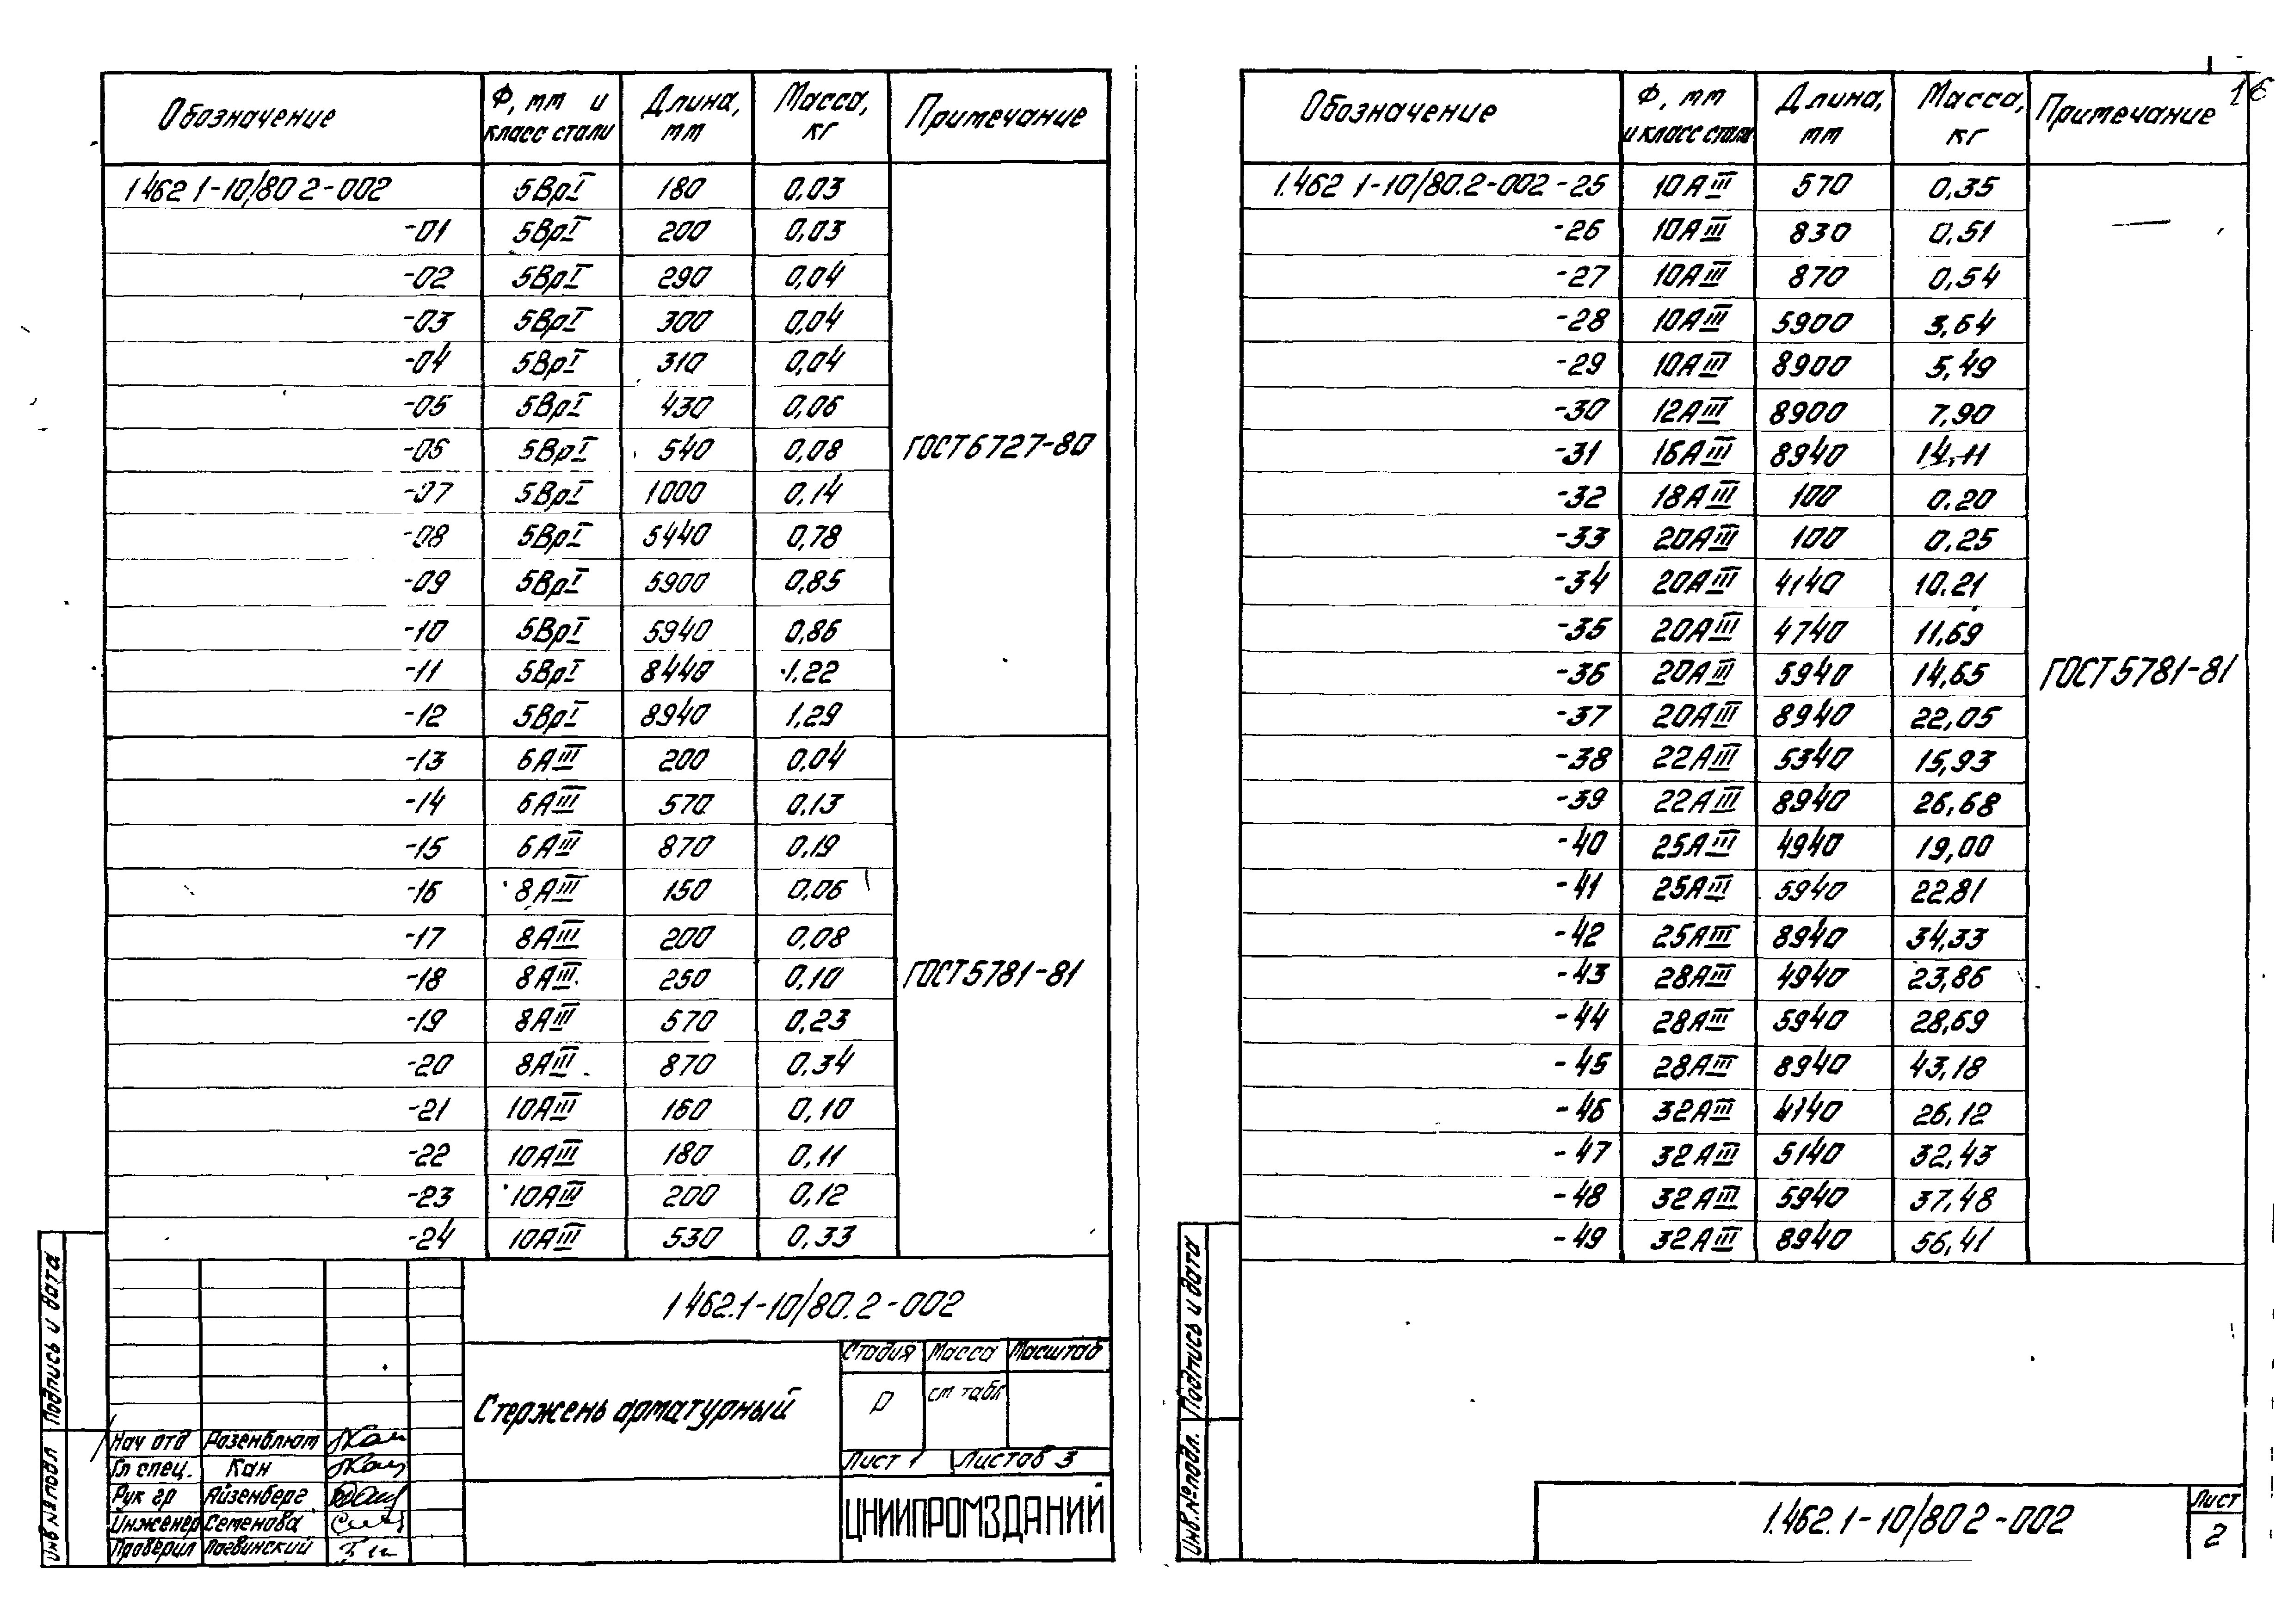 Обозначение Ф, мм и класс стали Длина, мм Масса, кг Примечание
1 462 1-10/80 2-002 5ВрI 180 0,03
-01 5ВрI 200 0,03
-02 5ВрI 290 0,04
-03 5ВрI 300 0,04
-04 5ВрI 310 0,04
-05 5ВрI 430 0,06
-06 5ВрI 540 0,08 ГОСТ 6727-80
-07 5ВрI 1000 0,14
-08 5ВрI 5440 0,78
-09 5ВрI 5900 0,85
-10 5ВрI 5940 0,86
-11 5ВрI 8440 1.22
-12 5ВрI 8940 1,29
-13 6АIII 200 0,04
-14 6АIII 570 0,13
-15 6АIII 870 0,19
-16 8АIII 150 0,06
-17 8АIII 200 0,08
-18 8АIII 250 0,10 ГОСТ 5781-81
-19 8АIII 570 0,23
-20 8АIII 870 0,34
-21 10АIII 160 0,10
-22 10АIII 180 0,11
-23 10АIII 200 0,12
-24 10АIII 530 0,33
1 462.1-10/80.2-002
Стержень арматурный
Стадия Масса Масштаб
Р см табл
Лист 1 Листов 3
ЦНИИПРОМЗДАНИЙ
Нач отд Розенблюм
Гл спец. Кан
Рук гр Айзенберг
Инженер Семенова
Проверил Логвинский
Подпись и дата
Инв № подл
16
Обозначение Ф, мм и класс стали Длина, мм Масса, кг Примечание
1.462 1-10/80.2-002 -25 10АIII 570 0,35
-26 10АIII 830 0,51
-27 10АIII 870 0,54
-28 10АIII 5900 3,64
-29 10АIII 8900 5,49
-30 12АIII 8900 7,90
-31 16АIII 8940 14,11
-32 18АIII 100 0.20
-33 20АIII 100 0.25
-34 20АIII 4140 10.21
-35 20АIII 4740 11,69
-36 20АIII 5940 14,65 ГОСТ 5781-81
-37 20АIII 8940 22,05
-38 22АIII 5340 15,93
-39 22АIII 8940 26,68
-40 25АIII 4940 19,00
-41 25АIII 5940 22,81
-42 25АIII 8940 34,33
-43 28АIII 4940 23,86
-44 28АIII 5940 28,69
-45 28АIII 8940 43,18
-46 32АIII 4140 26,12
-47 32АIII 5140 32,43
-48 32АIII 5940 37,48
-49 32АIII 8940 56,41
Подпись и дата
Инв.№ подл.
1.462.1-10/80 2-002
Лист
2